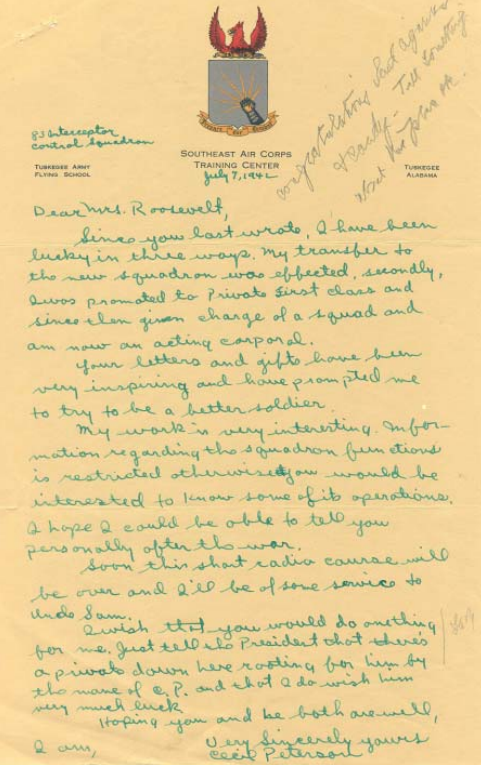 83 Interceptor
control squadron
TUSKEGEE ARMY
FLYING SCHOOL
SOUTHEAST AIR CORPS
TRAINING CENTER
July 7, 1942
TUSKEGEE
ALABAMA
congratulations
Tell something
Dear Mrs. Roosevelt,
Since you last wrote, I have been
lucky in three ways. My transfer to
the new squadron was effected, secondly,
I was promoted to Private First class and
since then given charge of a squad and
am now an acting corporal.
Your letters and gifts have been
very inspiring and have prompted me
to try to be a better soldier.
My work is very interesting. Infor-
mation regarding the squadron functions
is restricted otherwise you would be
interested to know some of its operations.
I hope I could be able to tell you
personally after the war.
Soon this short radio course will
be over and I'll be of some service to
Uncle Sam.
I wish that you would do one thing
for me. Just tell the President that there's
a private down here rooting for him by
the name of C.P. and that I do wish him
very much luck
Hoping you and he both are well,
I am,
Very Sincerely yours
Cecil Peterson